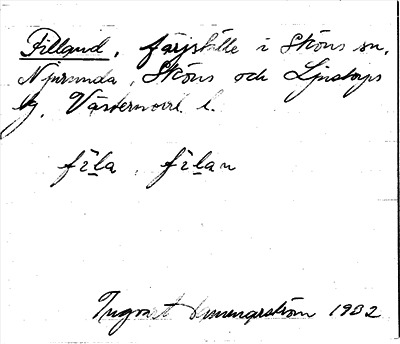 Filland, färjställe i Sköns sn,
Njurunda, Sköns och Ljustorps
tg, Västernorrl. l.
fìla, fìlan
Ingvart 1932